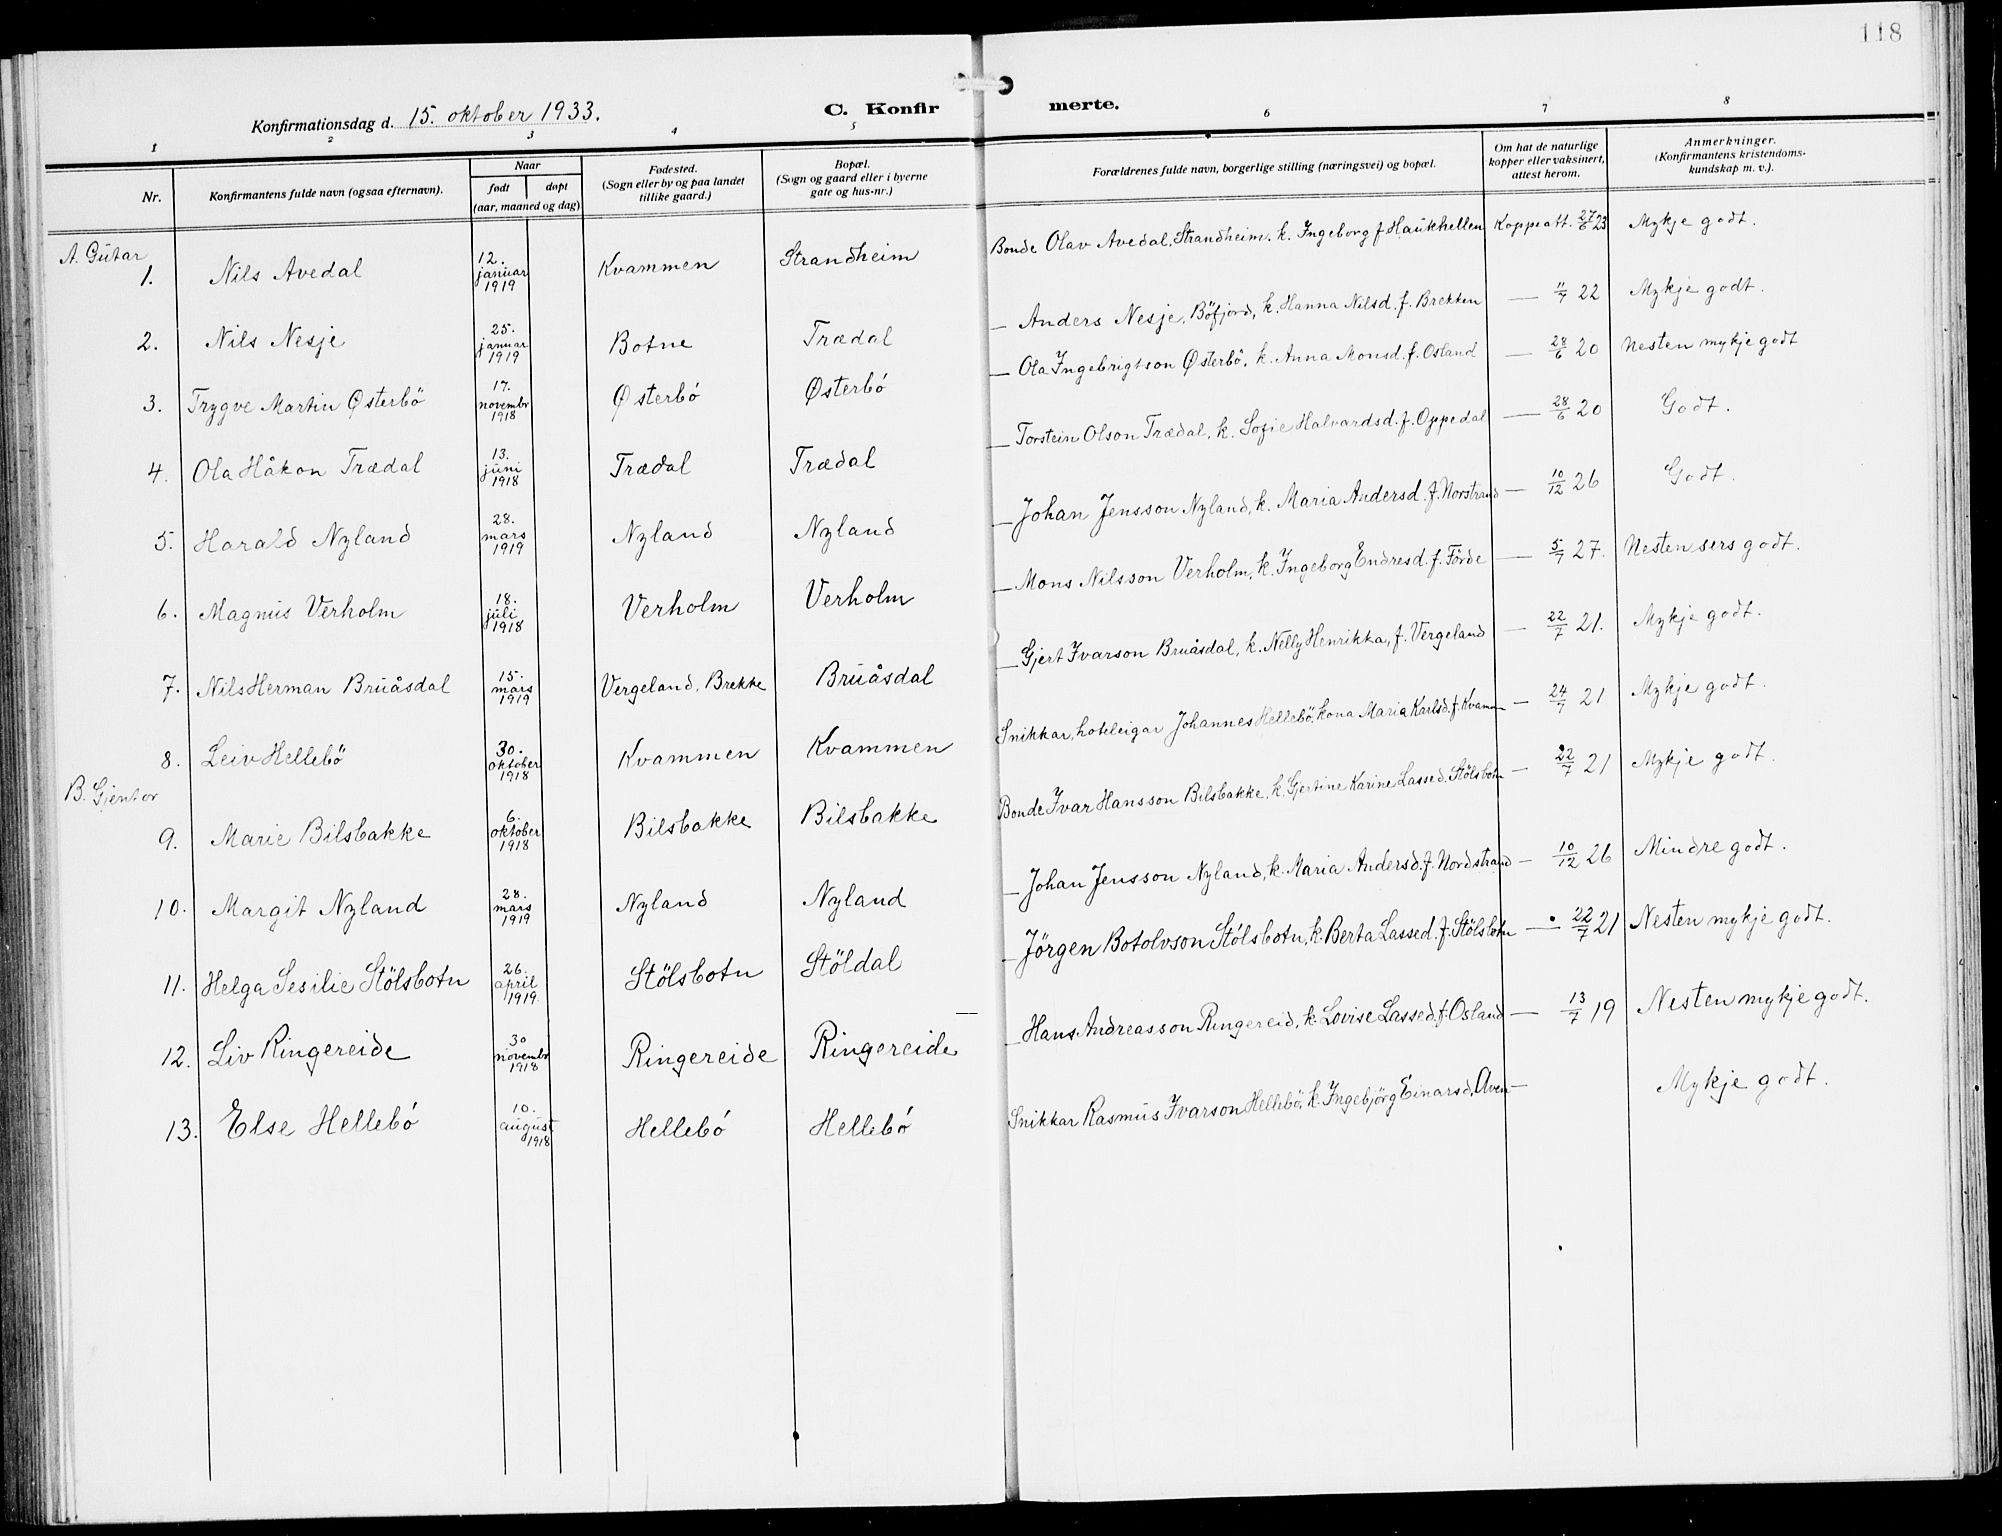 118
Konfirmationsdag d. 15. oktober 1933.
C. Konfirmerte.
1 2 3 4 5 6 7 8
Nr.
Konfirmantens fulde navn (ogsaa efternavn).
Naar
født
døpt
(aar, maaned og dag)
Fødested.
(Sogn eller by og paa landet
tillike gaard.)
Bopæl.
(Sogn og gaard eller i byerne
gate og hus-nr.)
Forældrenes fulde navn, borgerlige stilling (næringsvei) og bopæl.
Om hat de naturlige
kopper eller vaksinert,
attest herom.
Anmerkninger.
(Konfirmantens kristendoms-
kundskap m. v.).
A. Gutar
1. Nils Avedal 12. januar 1919 Kvammen Strandheim Bonde Olav Avedal, Strandheim. k. Ingeborg f Haukhellen Koppeatt. 27/6 23 Mykje godt.
2. Nils Nesje 25. januar 1919 Botne Trædal — Anders Nesje, Böfjord, k. Hanna Nilsd. f. Brekken — 11/7 22 Mykje godt.
3. Trygve Martin Østerbö 17. novembr 1918 Østerbö Østerbö — Ola Ingebrigtson Østerbö, k. Anna Monsd. f. Osland — 28/6 20 Nesten mykje godt
4. Ola Håkon Trædal 13. juni 1918 Trædal Trædal — Torstein Olson Trædal, k. Sofie Halvardsd. f. Oppedal — 28/6 20 Godt.
5. Harald Nyland 28. mars 1919 Nyland Nyland — Johan Jensson Nyland, k. Maria Andersd. f. Norstrand — 10/12 26 Godt.
6. Magnus Verholm 18. juli 1918 Verholm Verholm — Mons Nilsson Verholm, k. Ingeborg Endresd. f. Förde — 5/7 27. Nesten sers godt.
7. Nils Herman Bruåsdal 15. mars 1919 Vergeland, Brekke Bruåsdal — Gjert Ivarson Bruåsdal, k. Nelly Henrikka, f. Vergeland — 22/7 21. Mykje godt.
8. Leiv Hellebö 30. oktober 1918 Kvammen Kvammen Snikkar, hoteleigar Johannes Hellebö, kona Maria Karlsd. f. Kvamen — 24/7 21 Mykje godt.
B. Gjentor
9. Marie Bilsbakke 6. oktober 1918 Bilsbakke Bilsbakke Bonde Ivar Hansson Bilsbakke, k. Gjertine Karine Lassed. Stölsbotn — 22/7 21 Mykje godt.
10. Margit Nyland 28. mars 1919 Nyland Nyland — Johan Jensson Nyland, k. Maria Andersd. f. Nordstrand — 10/12 26 Mindre godt.
11. Helga Sesilie Stölsbotn 26. april 1919. Stölsbotn Stöldal — Jörgen Botolvson Stölsbotn, k. Berta Lassed. f. Stölsbotn — 22/7 21 Nesten mykje godt.
12. Liv Ringereide 30 novembr 1918 Ringereide Ringereide — Hans Andreasson Ringereid, k. Lovise Lassed. f. Osland — 13/7 19 Nesten mykje godt.
13. Else Hellebö 10. august 1918 Hellebö Hellebö Snikkar Rasmus Ivarson Hellebö, k. Ingebjörg Einarsd, Aven — Mykje godt.